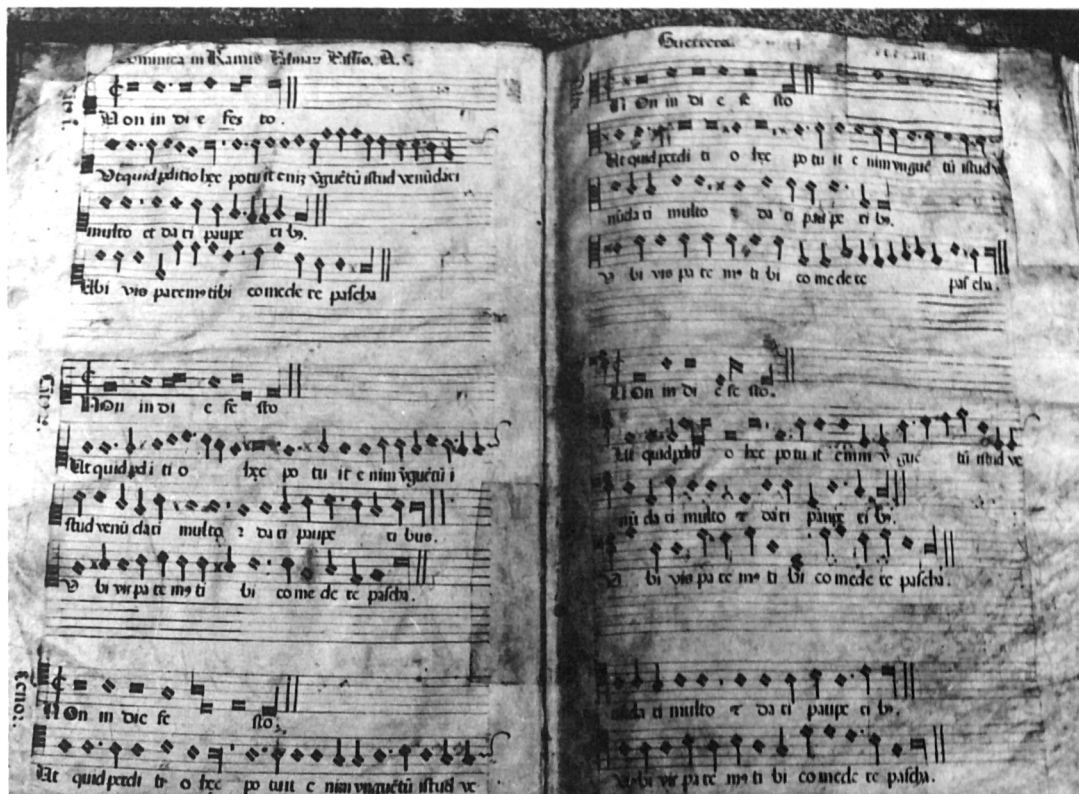 Dominica in Ramis Palmaꝝ Passio. D. S.
Non in di e fes to.
Vt quid pditio hęc potuit eniȝ vguẽtũ istud venũdari
multo et da ri paupe ri bꝰ.
Vbi vis paremꝰ tibi comede re pascha
Non in di e fe sto
Vt quid pdi ti o hęc po tu it e nim vguẽtũ i
stud venũ dari multo ꝛ da ri paupe ri bus.
V bi vis pa re mꝰ ti bi co me de re pascha.
Tenor.
Non in die fe sto.
Vt quid perdi ti o hęc po tuit e nim vnguẽtũ istud ve
Guerrero.
Non in di e fe sto
Vt quid perdi ti o hęc po tu it e nim vnguẽ tũ istud ve
nũda ri multo ꝛ da ri paupe ri bꝰ.
V bi vis pa re mꝰ ti bi co me de re pascha.
Non in di e fe sto.
Vt quid pditi o hęc po tu it enim v guẽ tũ istud ve
nũ da ri multo ꝛ dari paupe ri bꝰ.
V bi vis pa re mꝰ ti bi co mede re pascha.
nũda ri multo ꝛ da ri paupe ri bꝰ.
V bi vis pa re mꝰ ti bi co mede re pascha.